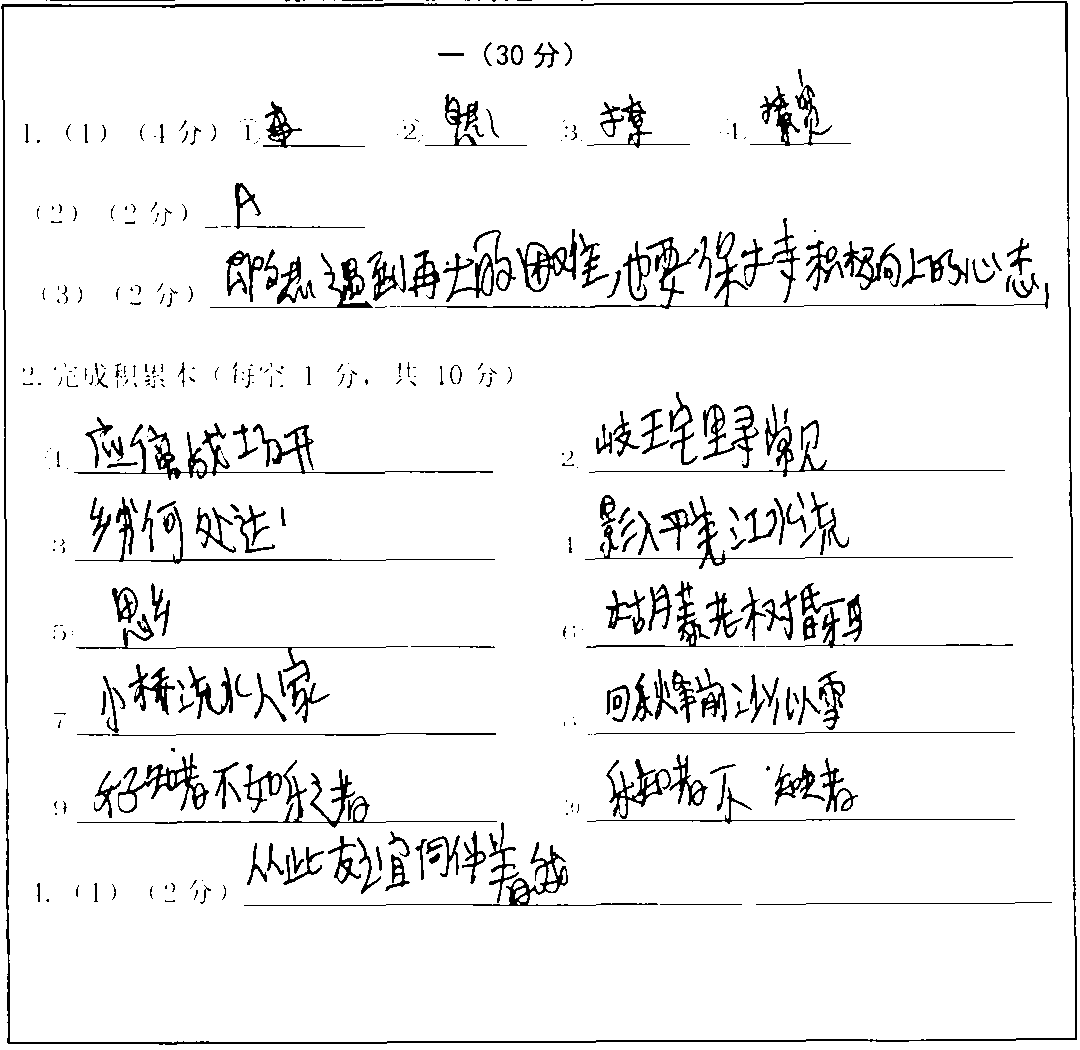 一（30分）
1.（1）（4分）① ② 3. 4.
（2）（2分）A
（3）（2分）即使遇到再大的困难,也要保持积极向上的心态,
2.完成积累本（每空1分，共10分）
1. 应傍战场开 2. 岐王宅里寻常见
3. 乡书何处达 4. 影入平羌江水流
5. 思乡 6. 枯藤老树昏鸦
7 小桥流水人家 回乐烽前沙似雪
9 好知者不如乐之者 者不 者
1.（1）（2分）从此友谊伺伴着我